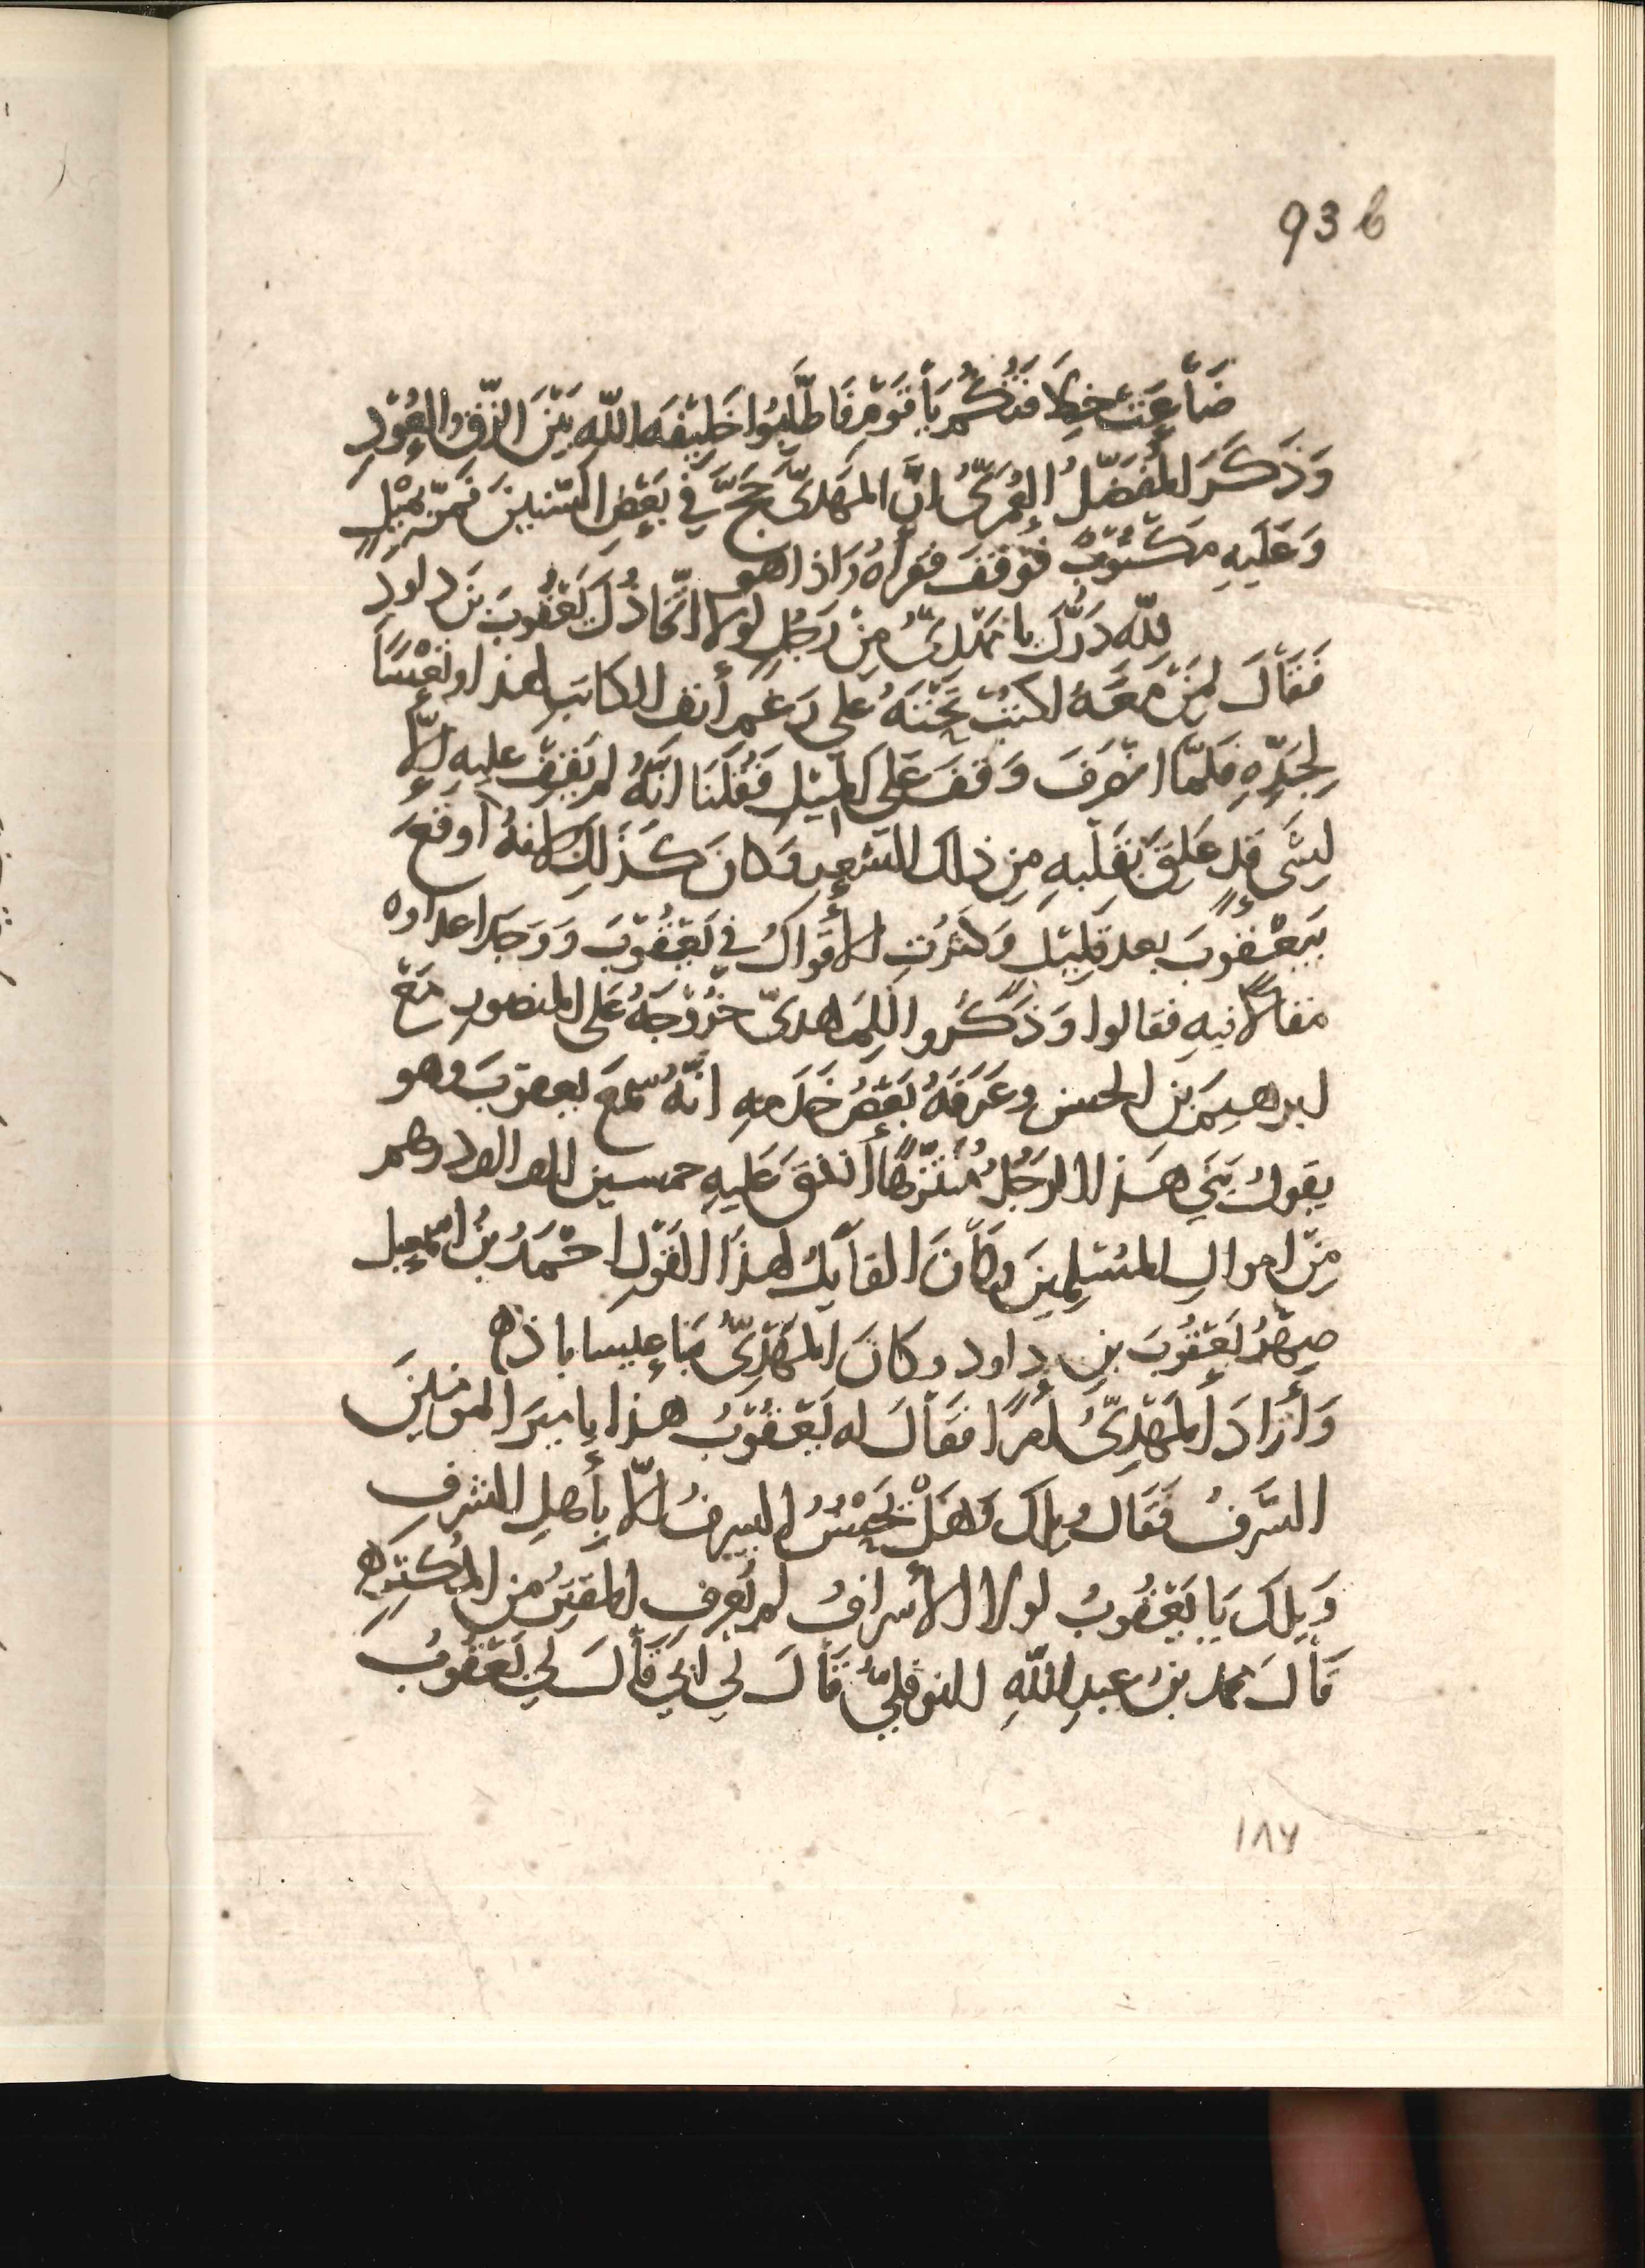 93 b
ضَاعَتْ خِلَافَتُكُمْ يَا قَوْمِ فَاطَّلِبُوا خَلِيفَةَ اللّٰهِ بَيْنَ الزِّقِّ والعُوْدِ
وَذَكَرَ المُفَضَّلُ العُمَرِيُّ انَّ المَهْدِيَّ حَجَّ فِي بَعْضِ السِّنِينَ فَمَرَّ بِمِيْلٍ
وَعَلَيهِ مَكْتُوْبٌ فَوَقَفَ فَقَرأَهُ وَاذا هو
لِلّٰهِ دَرُّكَ يا مَهْدِيُّ مِنْ رَجُلٍ لولا اتِّخاذُكَ يَعْقُوبَ بنَ داودِ
فَقَالَ لِمَنْ مَعَهُ اكتُبْ تَحْتَهُ على رَغمِ أَنفِ الكاتبِ لهذا وتَعْسًا
لِجَدِّهِ فَلَمّا انْصَرَفَ وَقَفَ عَلى المِيْلِ فَقُلْنَا انَّهُ لم يَقِفْ عليه إلّا
لِشَيءٍ قد عَلِقَ بقَلبِهِ مِن ذلك الشعرِ وَكانَ كَذَلِكَ لانهُ أوقَعَ
بِيَعْقُوبَ بعد قَلِيْلٍ وَكَثُرَتِ الأَقوالُ في يَعْقُوْبَ وَوَجَدَ اعداوه
مَقالًا فيهِ فقالوا وَذَكَرُوا لِلمَهدىّ خُرُوْجَهُ عَلى المنصورِ مَعَ
ابرهيمَ بنِ الحسن وعَرَّفَهُ بَعْضُ خَدَمِهِ انَّهُ سمِعَ يعقوبَ وهو
يقولُ بَنَى هَذا الرَجُلُ مُتَنَزَّهًا أَنفَقَ عَلَيهِ خمسين الف الف درهم
مِنْ اموالِ المُسْلِمِينَ وكَانَ القائلُ لهذَا القَوْلِ احْمَدُ بنُ اسمعيل
صِهْرُ يَعْقُوبَ بنِ داود وكانَ المَهْدِيُّ بَنَا عيسا باذه
وَأَرَادَ المَهْدِيُّ أَمْرًا فقَالَ له يَعْقُوْبُ هذا يا ميرَ المومنِينَ
السَّرَفُ فَقَالَ ويلك وَهَلْ يَحْسُنُ السرفُ الّا بأهلِ الشرفِ
وَيلَكَ يَا يَعْقُوبُ لولا الأسرافُ لم يُعرفِ المُقتِرُ من المُكثِرِ ه
قَالَ محمد بنُ عبدِ اللّٰهِ النوفليُّ قَالَ لي ابي قَالَ لي يَعْقُوبُ
١٨٦